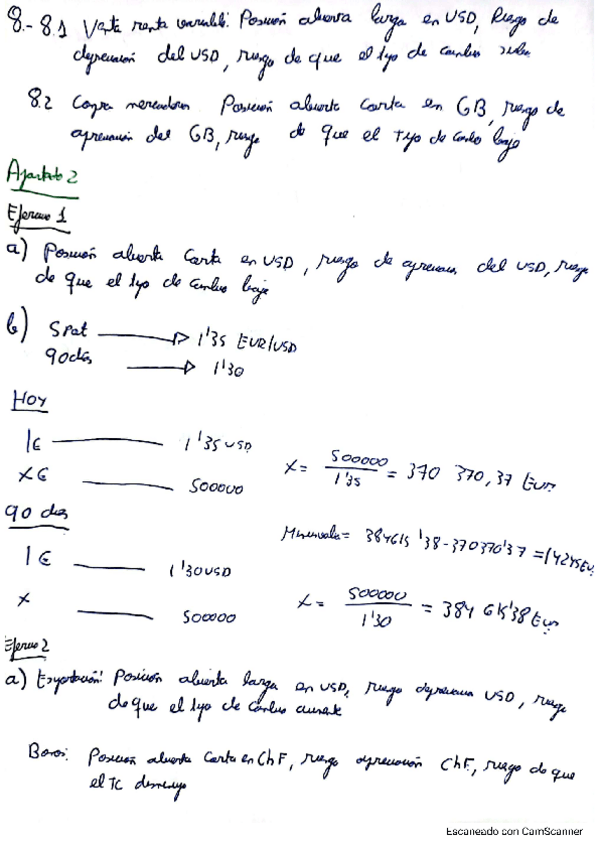 8.- 8.1 Venta renta variable: Posición abierta larga en USD, Riesgo de
depreciación del USD, riesgo de que el tipo de cambio suba
8.2 Compra mercaderías Posición abierta Corta en GB, riesgo de
apreciación del GB, riesgo de que el tipo de cambio baje
Apartado 2
Ejercicio 1
a) Posición abierta Corta en USD, riesgo de apreciación del USD, riesgo
de que el tipo de cambio baje
b) Spot 1'35 EUR/USD
90 días 1'30
Hoy
1€ 1'35 USD
X€ 500000
X = 500000 / 1'35 = 370 370,37 Eur
90 días
Minusvalía = 384615'38-370370'37 = 14245 EUR
1€ 1'30 USD
X 500000
X = 500000 / 1'30 = 384 615'38 Eur
Ejercicio 2
a) Exportación: Posición abierta larga en USD, riesgo depreciación USD, riesgo
de que el tipo de Cambio aumente
Bonos: Posición abierta Corta en ChF, riesgo apreciación ChF, riesgo de que
el TC disminuya
Escaneado con CamScanner